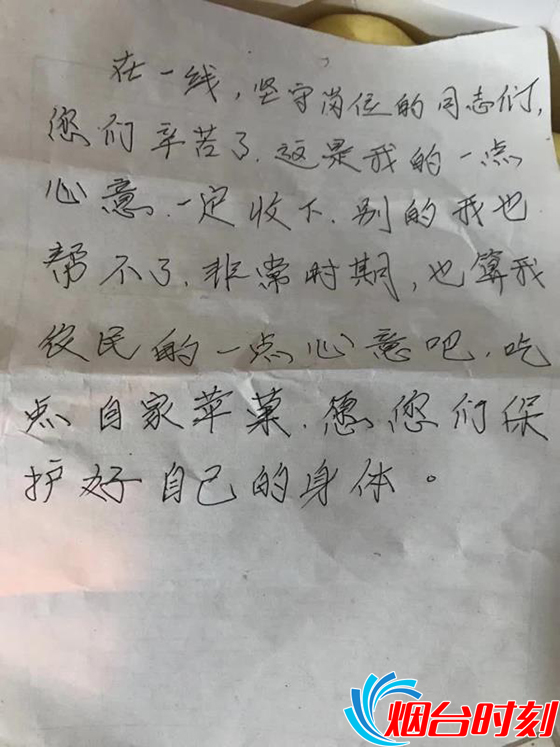 在一线，坚守岗位的同志们，
您们辛苦了.这是我的一点
心意.一定收下.别的我也
帮不了.非常时期，也算我
农民的一点心意吧.吃
点自家苹菓.愿您们保
护好自己的身体。
烟台时刻